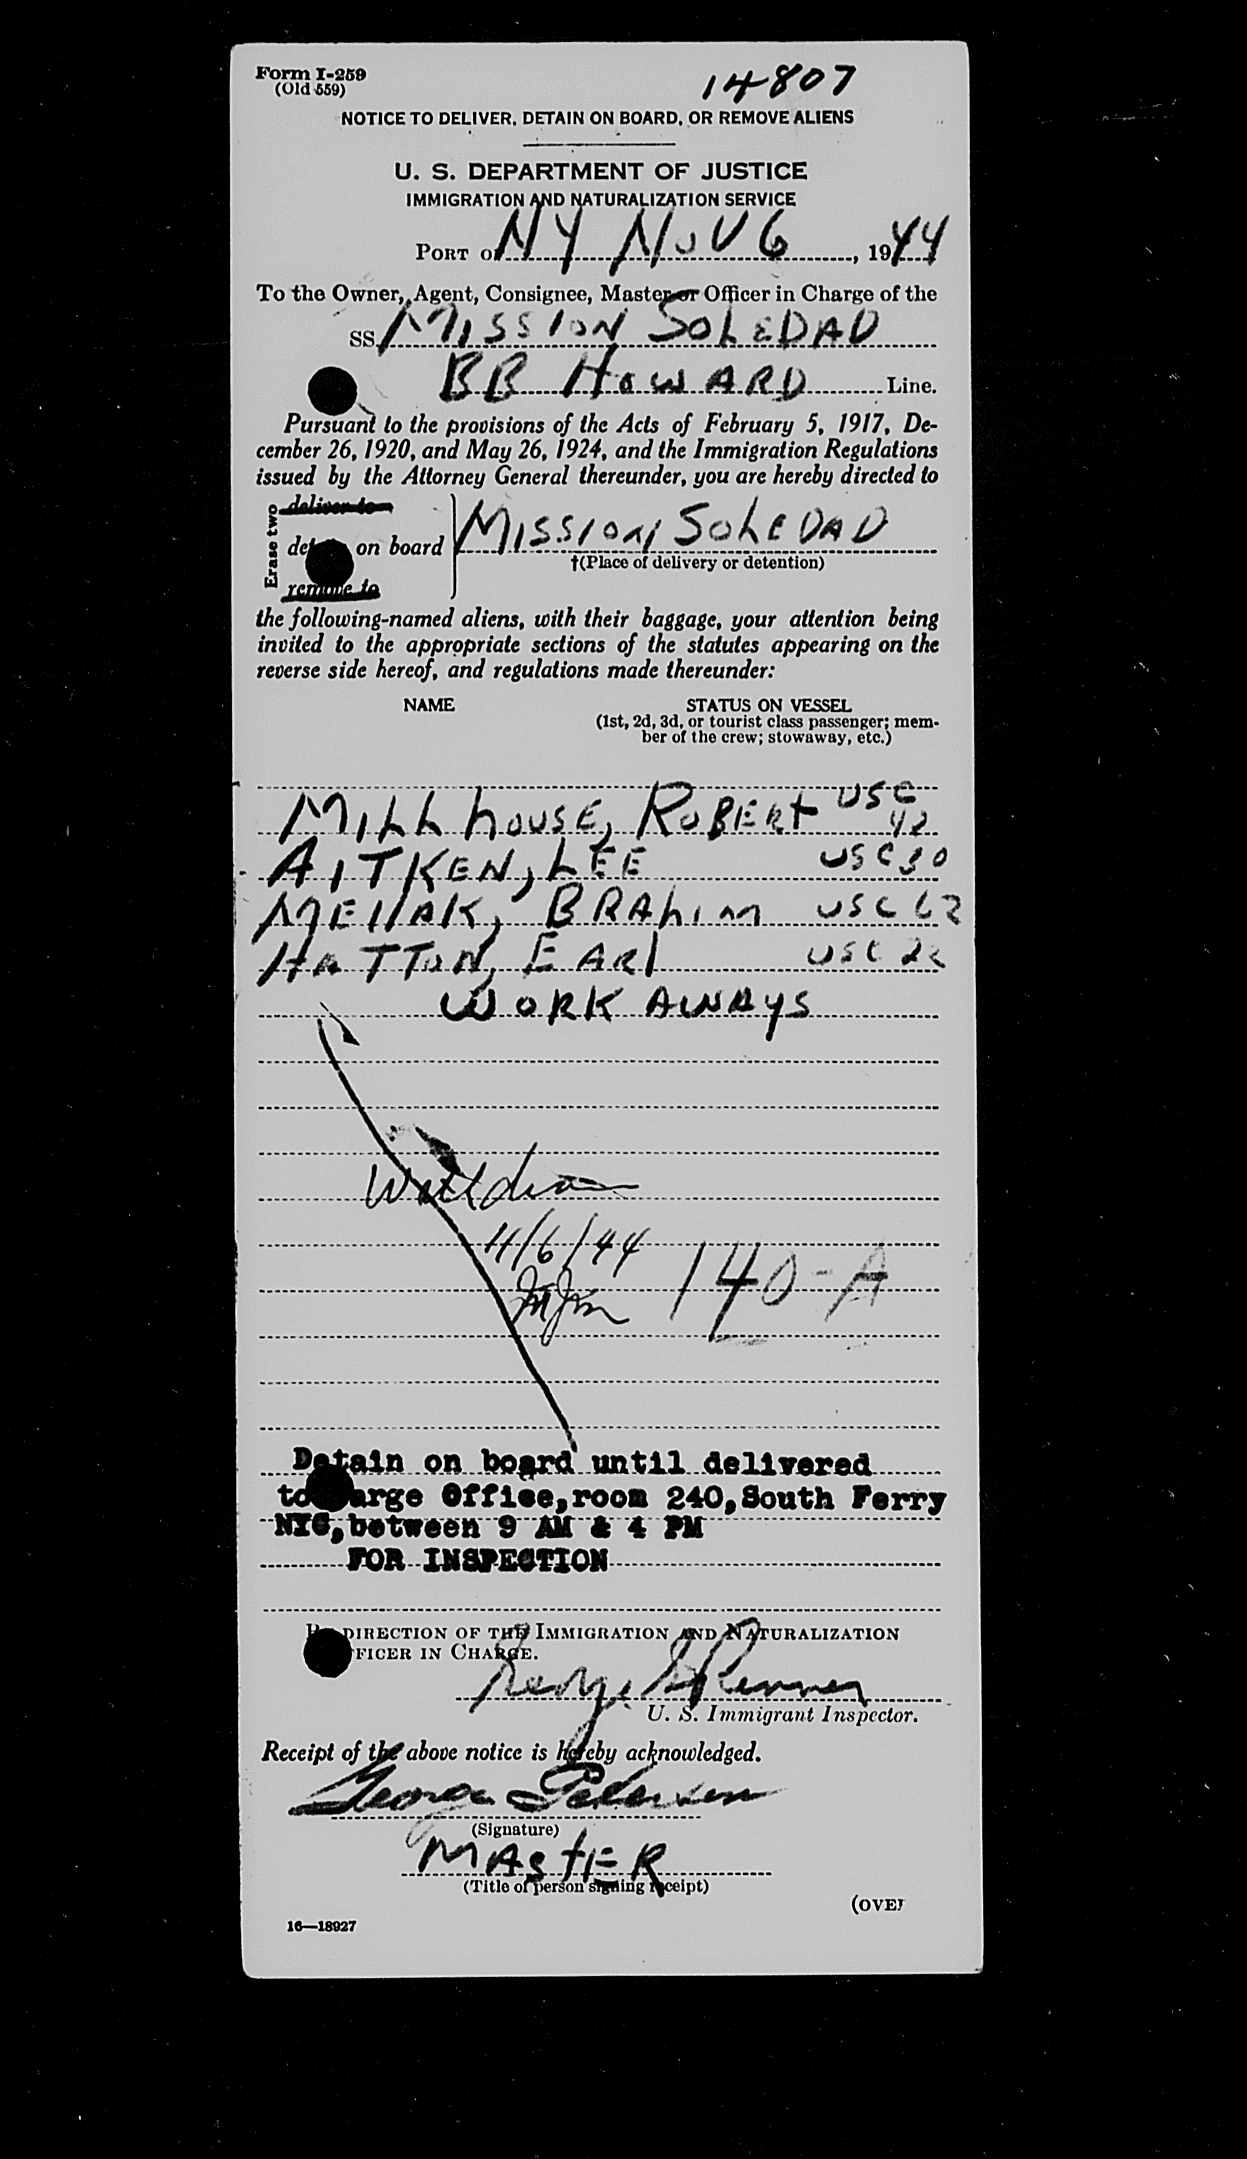 Form I-259
(Old 559)
14807
NOTICE TO DELIVER, DETAIN ON BOARD, OR REMOVE ALIENS
U. S. DEPARTMENT OF JUSTICE
IMMIGRATION AND NATURALIZATION SERVICE
PORT of NY NOV 6, 1944
To the Owner, Agent, Consignee, Master or Officer in Charge of the
SS MISSION SOLEDAD
BB HOWARD Line.
Pursuant to the provisions of the Acts of February 5, 1917, De-
cember 26, 1920, and May 26, 1924, and the Immigration Regulations
issued by the Attorney General thereunder, you are hereby directed to
Erase two
deliver to
on board MISSION SOLEDAD
†(Place of delivery or detention)
remove to
the following-named aliens, with their baggage, your attention being
invited to the appropriate sections of the statutes appearing on the
reverse side hereof, and regulations made thereunder:
NAME STATUS ON VESSEL
(1st, 2d, 3d, or tourist class passenger; mem-
ber of the crew; stowaway, etc.)
MILLHOUSE, ROBERT USC 42
AITKEN, LEE USC 30
MELLAK, BRAHIM USC
HATTON, EARL USC
WORK AWAYS
11/6/44
140-A
Detain on board until delivered
to arge Office, room 240, South Ferry
NYC, between 9 AM & 4 PM
FOR INSPECTION
DIRECTION OF THE IMMIGRATION AND NATURALIZATION
FICER IN CHARGE.
George
U. S. Immigrant Inspector.
Receipt of the above notice is hereby acknowledged.
George Pedersen
(Signature)
MASTER
(Title of person signing receipt)
(OVER
16—18927